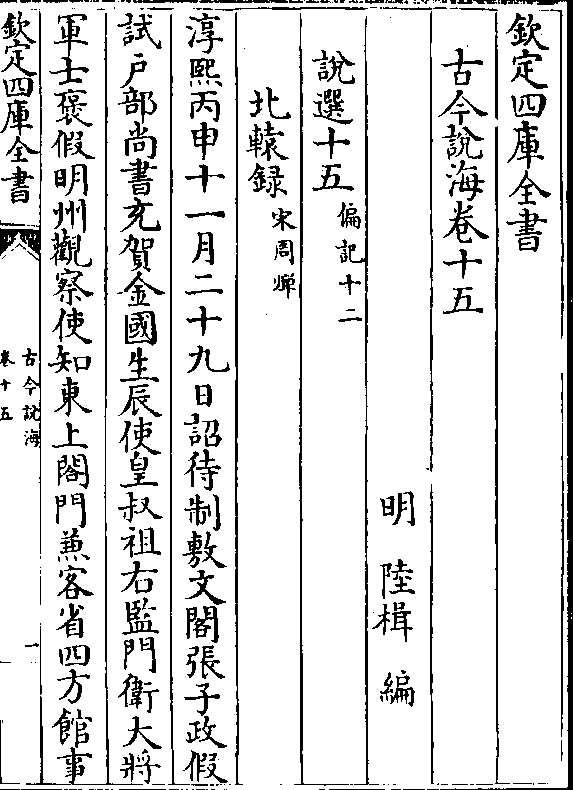 欽定四庫全書
古今說海卷十五
明 陸楫 編
說選十五 偏記十二
北轅録 宋周煇
淳熙丙申十一月二十九日詔待制敷文閣張子政假
試户部尚書充賀金國生辰使皇叔祖右監門衛大將
軍士褒假明州觀察使知東上閤門兼客省四方館事
欽定四庫全書
古今說海
卷十五
一